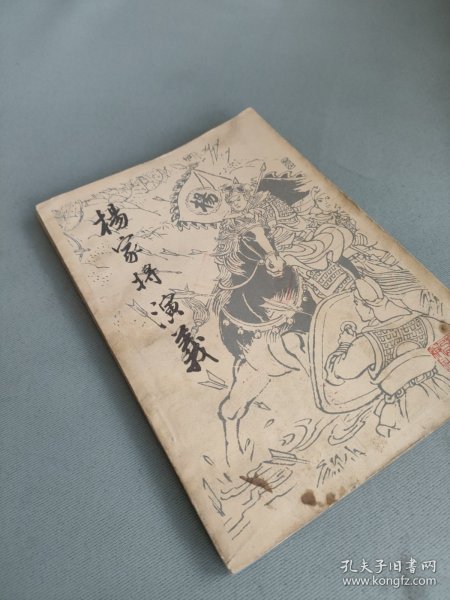 楊家将演義
楊
孔夫子旧书网
www.kongfz.com